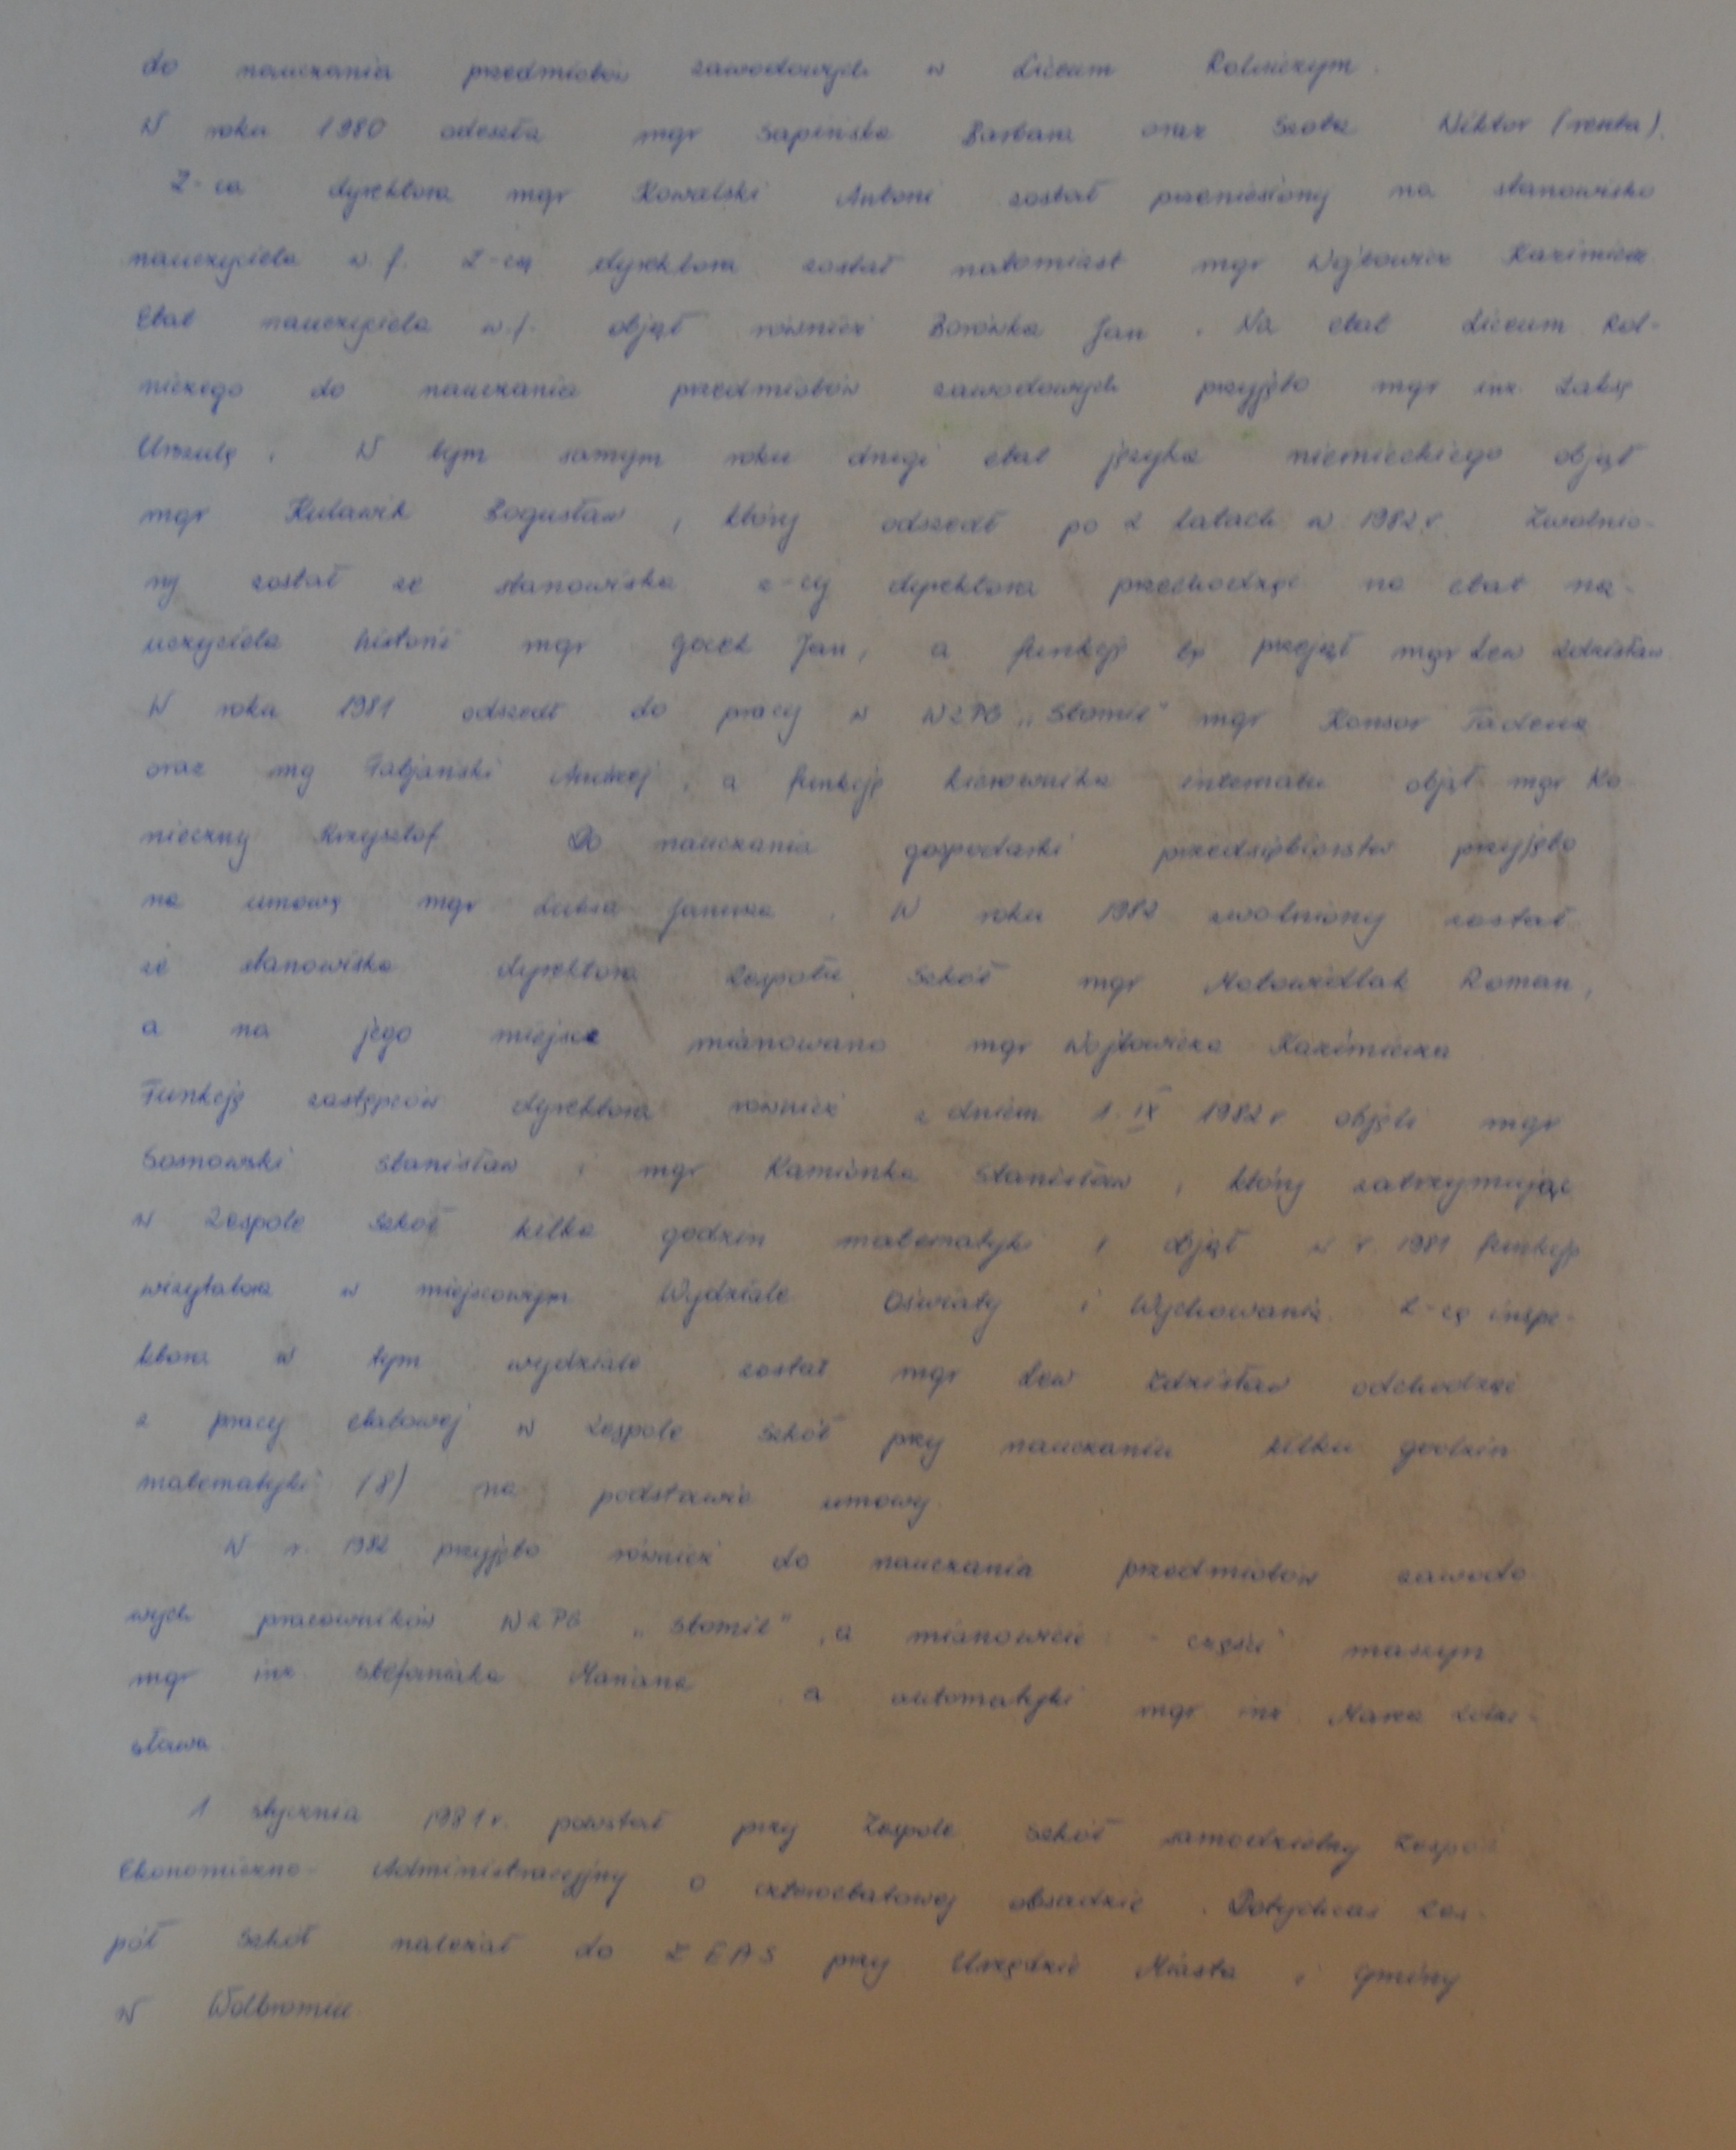 do nauczania przedmiotów zawodowych w Liceum Rolniczym.
W roku 1980 odeszła mgr Sapińska Barbara oraz Szota Wiktor (renta).
Z-ca dyrektora mgr Kowalski Antoni został przeniesiony na stanowisko
nauczyciela w.f. Z-cą dyrektora został natomiast mgr Wójtowicz Kazimierz
Etat nauczyciela w.f. objął również Borówka Jan. Na etat Liceum Rol-
niczego do nauczania przedmiotów zawodowych przyjęto mgr inż.
Urszulę. W tym samym roku drugi etat języka niemieckiego objął
mgr Kulawik Bogusław, który odszedł po 2 latach w 1982 r. Zwolnio-
ny został ze stanowiska z-cy dyrektora przechodząc na etat na-
uczyciela historii mgr Gocek Jan, a funkcję tę przejął mgr Lew Zdzisław
W roku 1981 odszedł do pracy w WZPG „Stomil" mgr Konsor Tadeusz
oraz mg Fatjański Andrzej, a funkcję kierownika internatu objął mgr Ko
nieczny Krzysztof Do nauczania gospodarki przedsiębiorstw przyjęto
na umowę mgr Janusza. W roku 1982 zwolniony został
ze stanowiska dyrektora Zespołu Szkół mgr Motowidlak Roman,
a na jego miejsce mianowano mgr Wójtowicza Kazimierza
Funkcję zastępców dyrektora również z dniem 1. IX 1982 r objęli mgr
Sosnowski Stanisław i mgr Kamionka Stanisław, który zatrzymując
w Zespole Szkół kilka godzin matematyki, objął w r. 1981 funkcję
wizytatora w miejscowym Wydziale Oświaty i Wychowania. Z-cą inspe-
ktora w tym wydziale został mgr Lew Zdzisław odchodząc
z pracy etatowej w Zespole Szkół przy nauczaniu kilku godzin
matematyki (8) na podstawie umowy.
W r. 1982 przyjęto również do nauczania przedmiotów zawodo
wych pracowników WZPG „Stomil", a mianowicie - części maszyn
mgr inż. Stefaniaka Mariana a automatyki mgr inż. Marca Zdzi-
sława
1 stycznia 1981 r. powstał przy Zespole Szkół samodzielny Zespół
Ekonomiczno-Administracyjny o czteroetatowej obsadzie. Dotychczas Zes-
pół Szkół należał do ZEAS przy Urzędzie Miasta i Gminy
w Wolbromiu